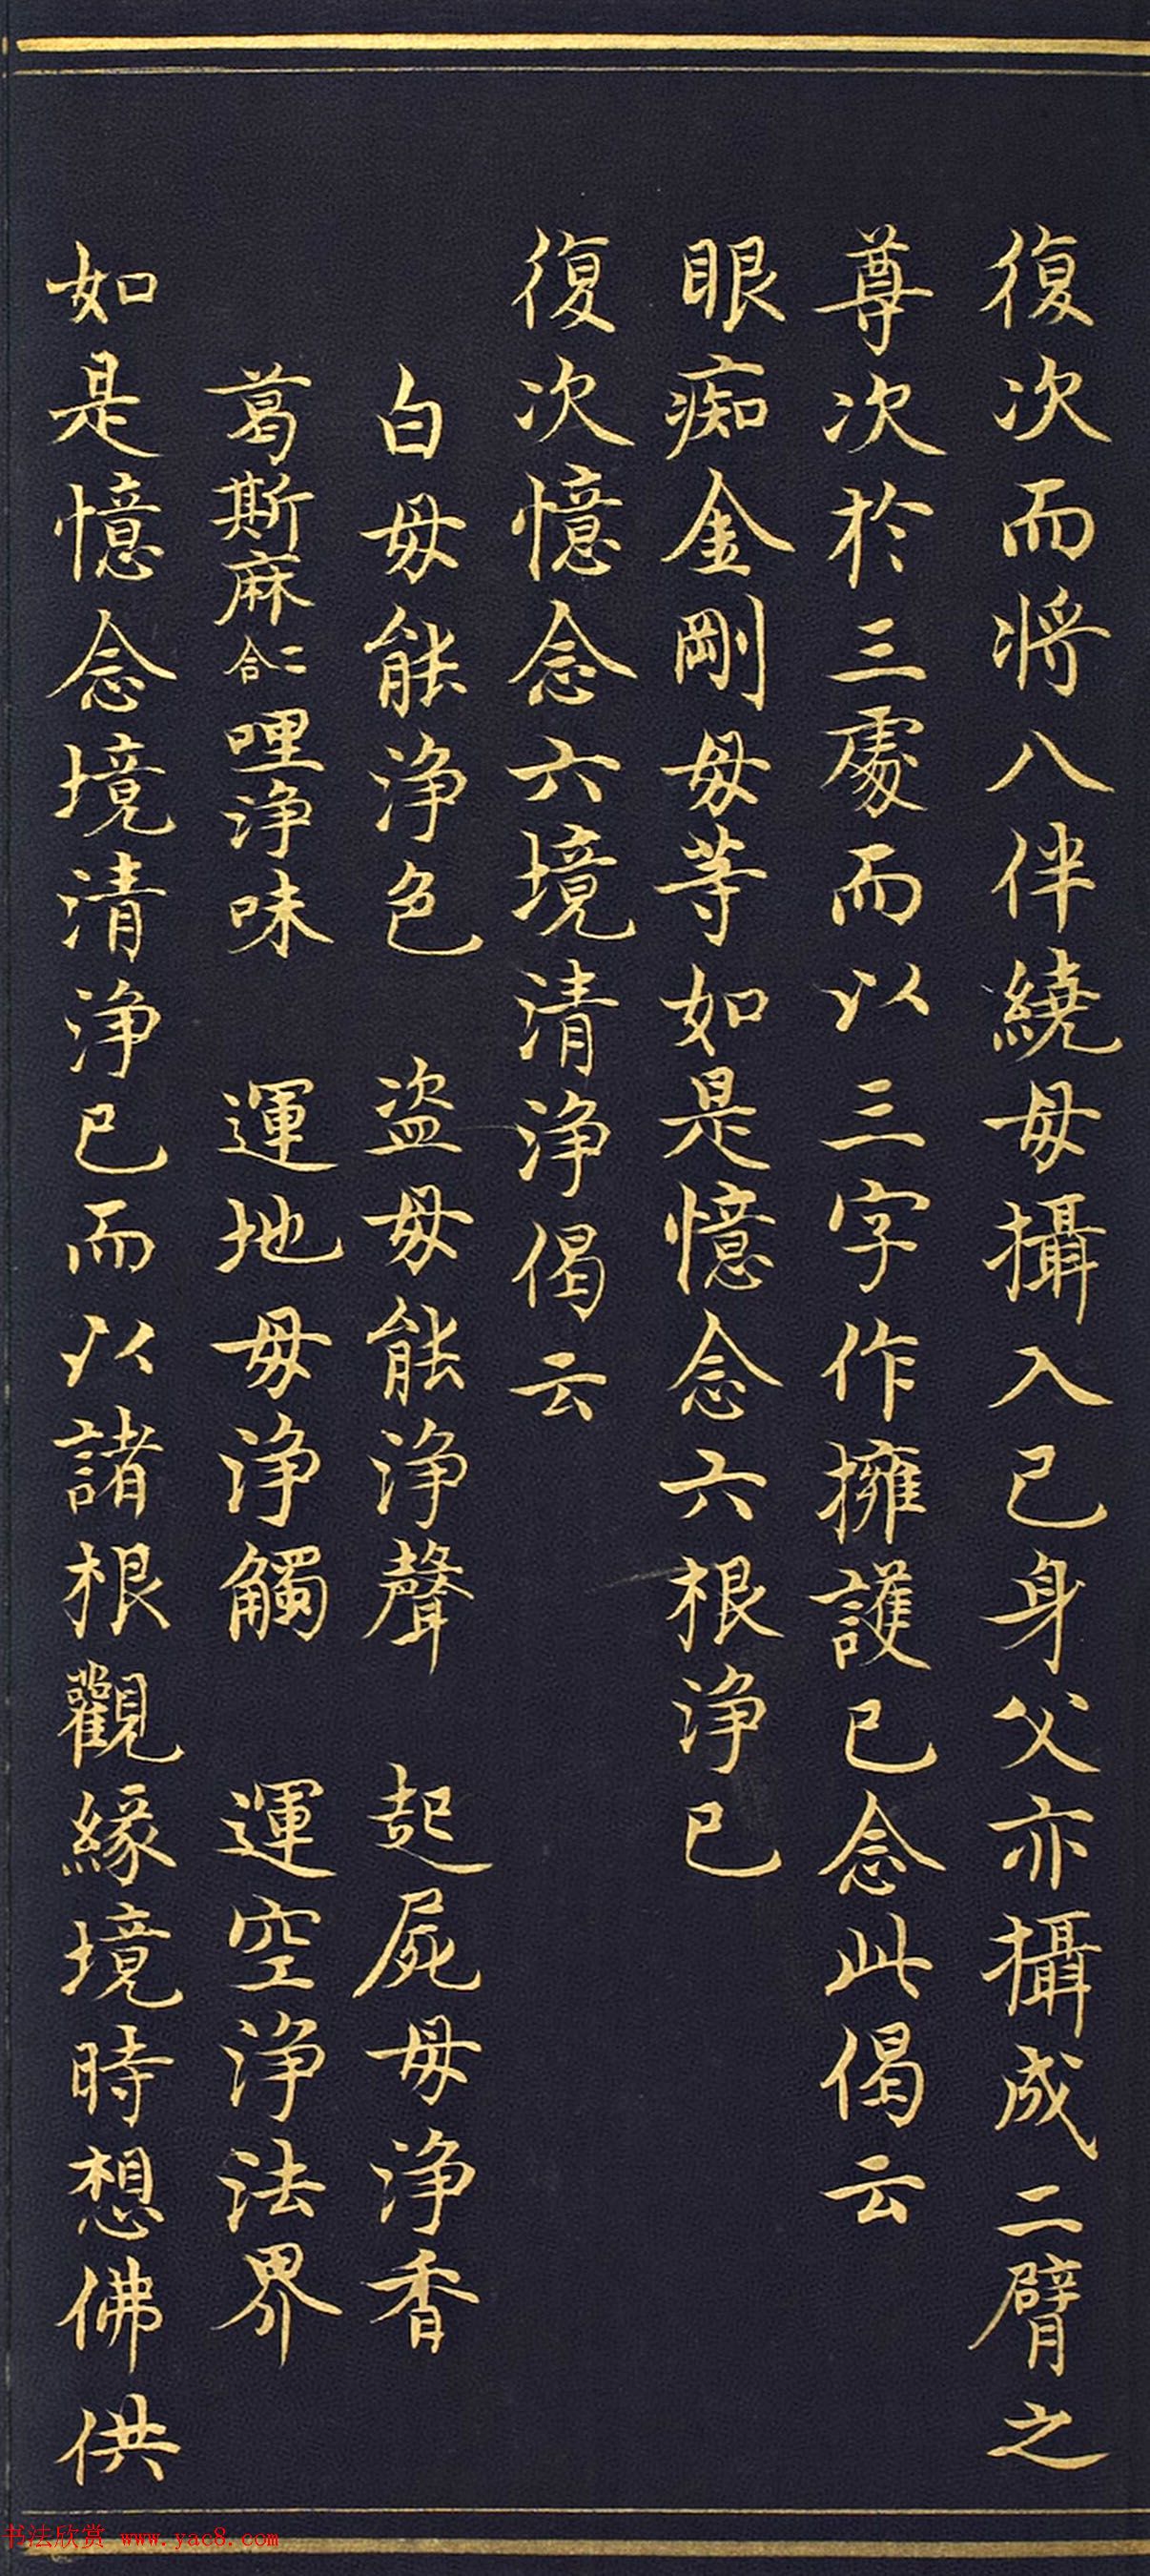 復次而將八伴繞母攝入己身父亦攝成二臂之
尊次於三處而以三字作擁護已念此偈云
眼痴金剛母等如是憶念六根淨已
復次憶念六境清淨偈云
白母能淨色 盜母能淨聲 起屍母淨香
葛斯麻二合哩淨味 運地母淨觸 運空淨法界
如是憶念境清淨已而以諸根觀緣境時想佛供
书法欣赏 www.yac8.com